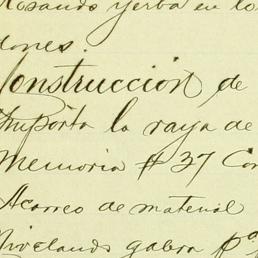 Rosando yerba en lo
dones.
Construcción de
Importa la raya de
Memoria # 37 Con
Acarreo de material
Nivelando galera pa